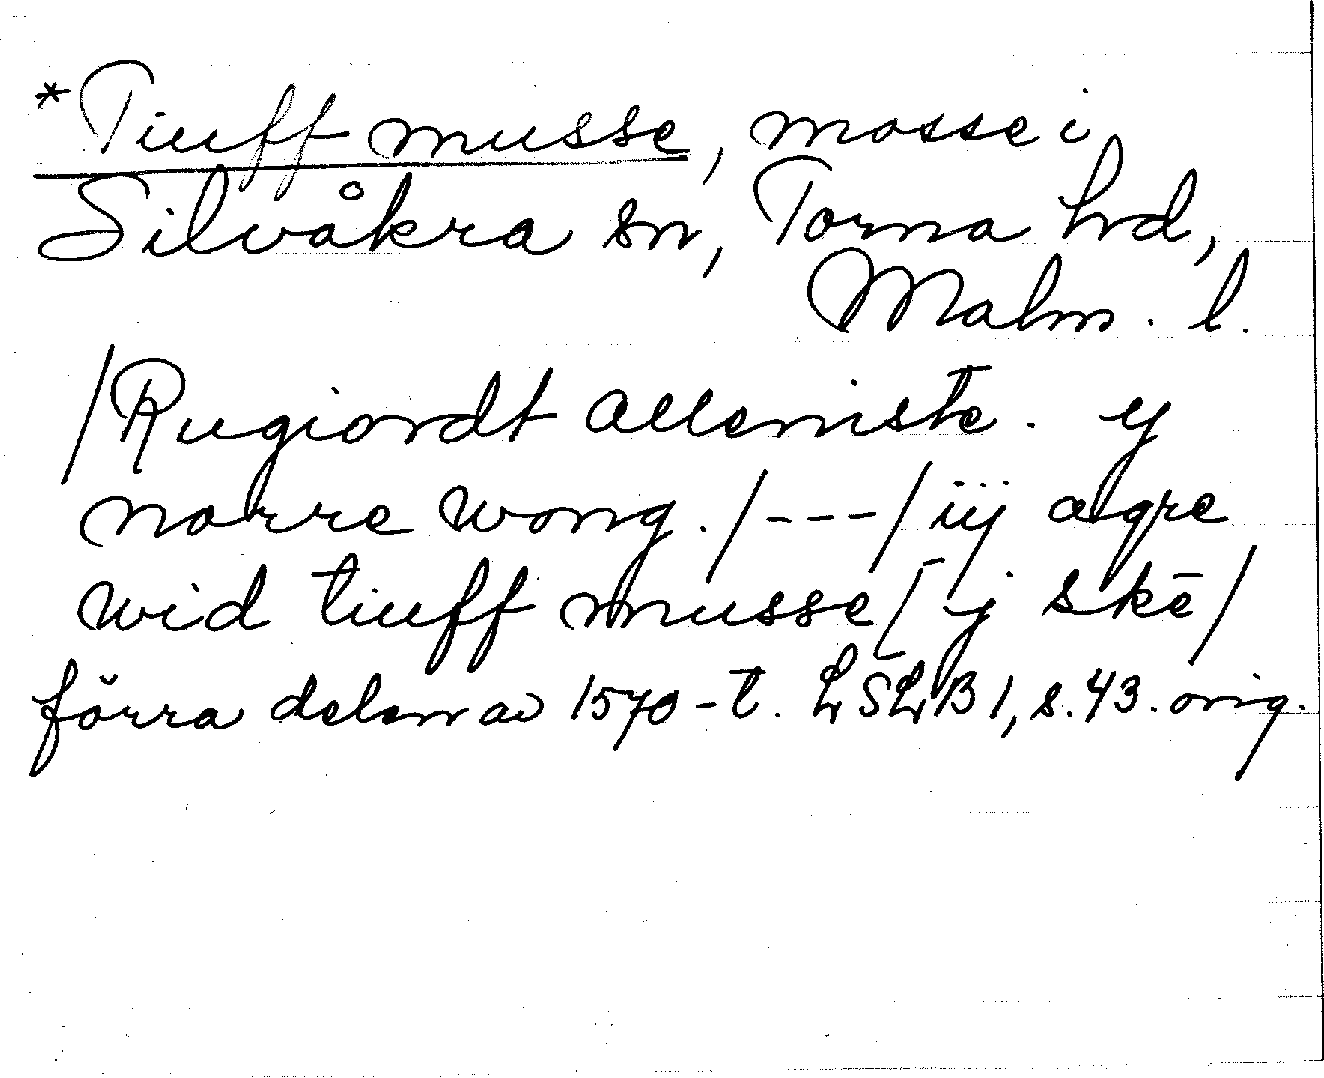 *Tiuff musse, mosse i
Silvåkra sn, Torna hd,
Malm. l.
/Rugiordt allemste. y
norre wong./---/iij agre
wid tiuff musse/ ij skē/
förra delen av 1570-t. LSLB 1, s. 43. orig.